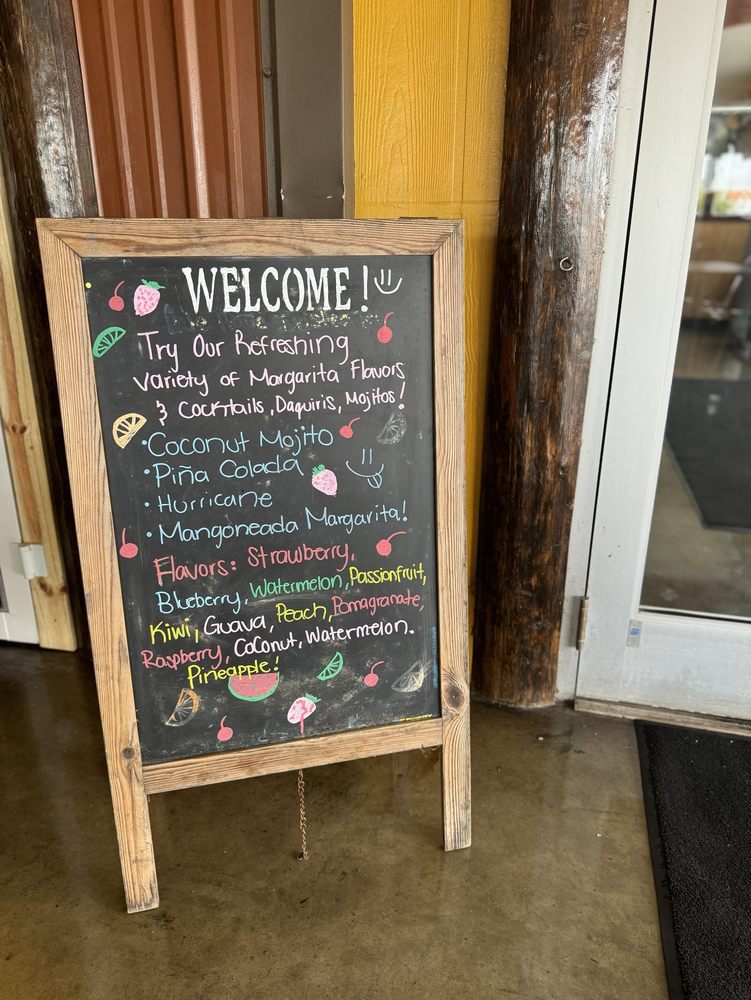 WELCOME!
Try Our Refreshing
variety of Margarita Flavors
& Cocktails, Daquiris, Mojitos!
• Coconut Mojito
• Piña Colada
• Hurricane
• Mangoneada Margarita!
Flavors: Strawberry,
Blueberry, Watermelon, Passionfruit,
Kiwi, Guava, Peach, Pomagranate,
Raspberry, Coconut, Watermelon.
Pineapple!